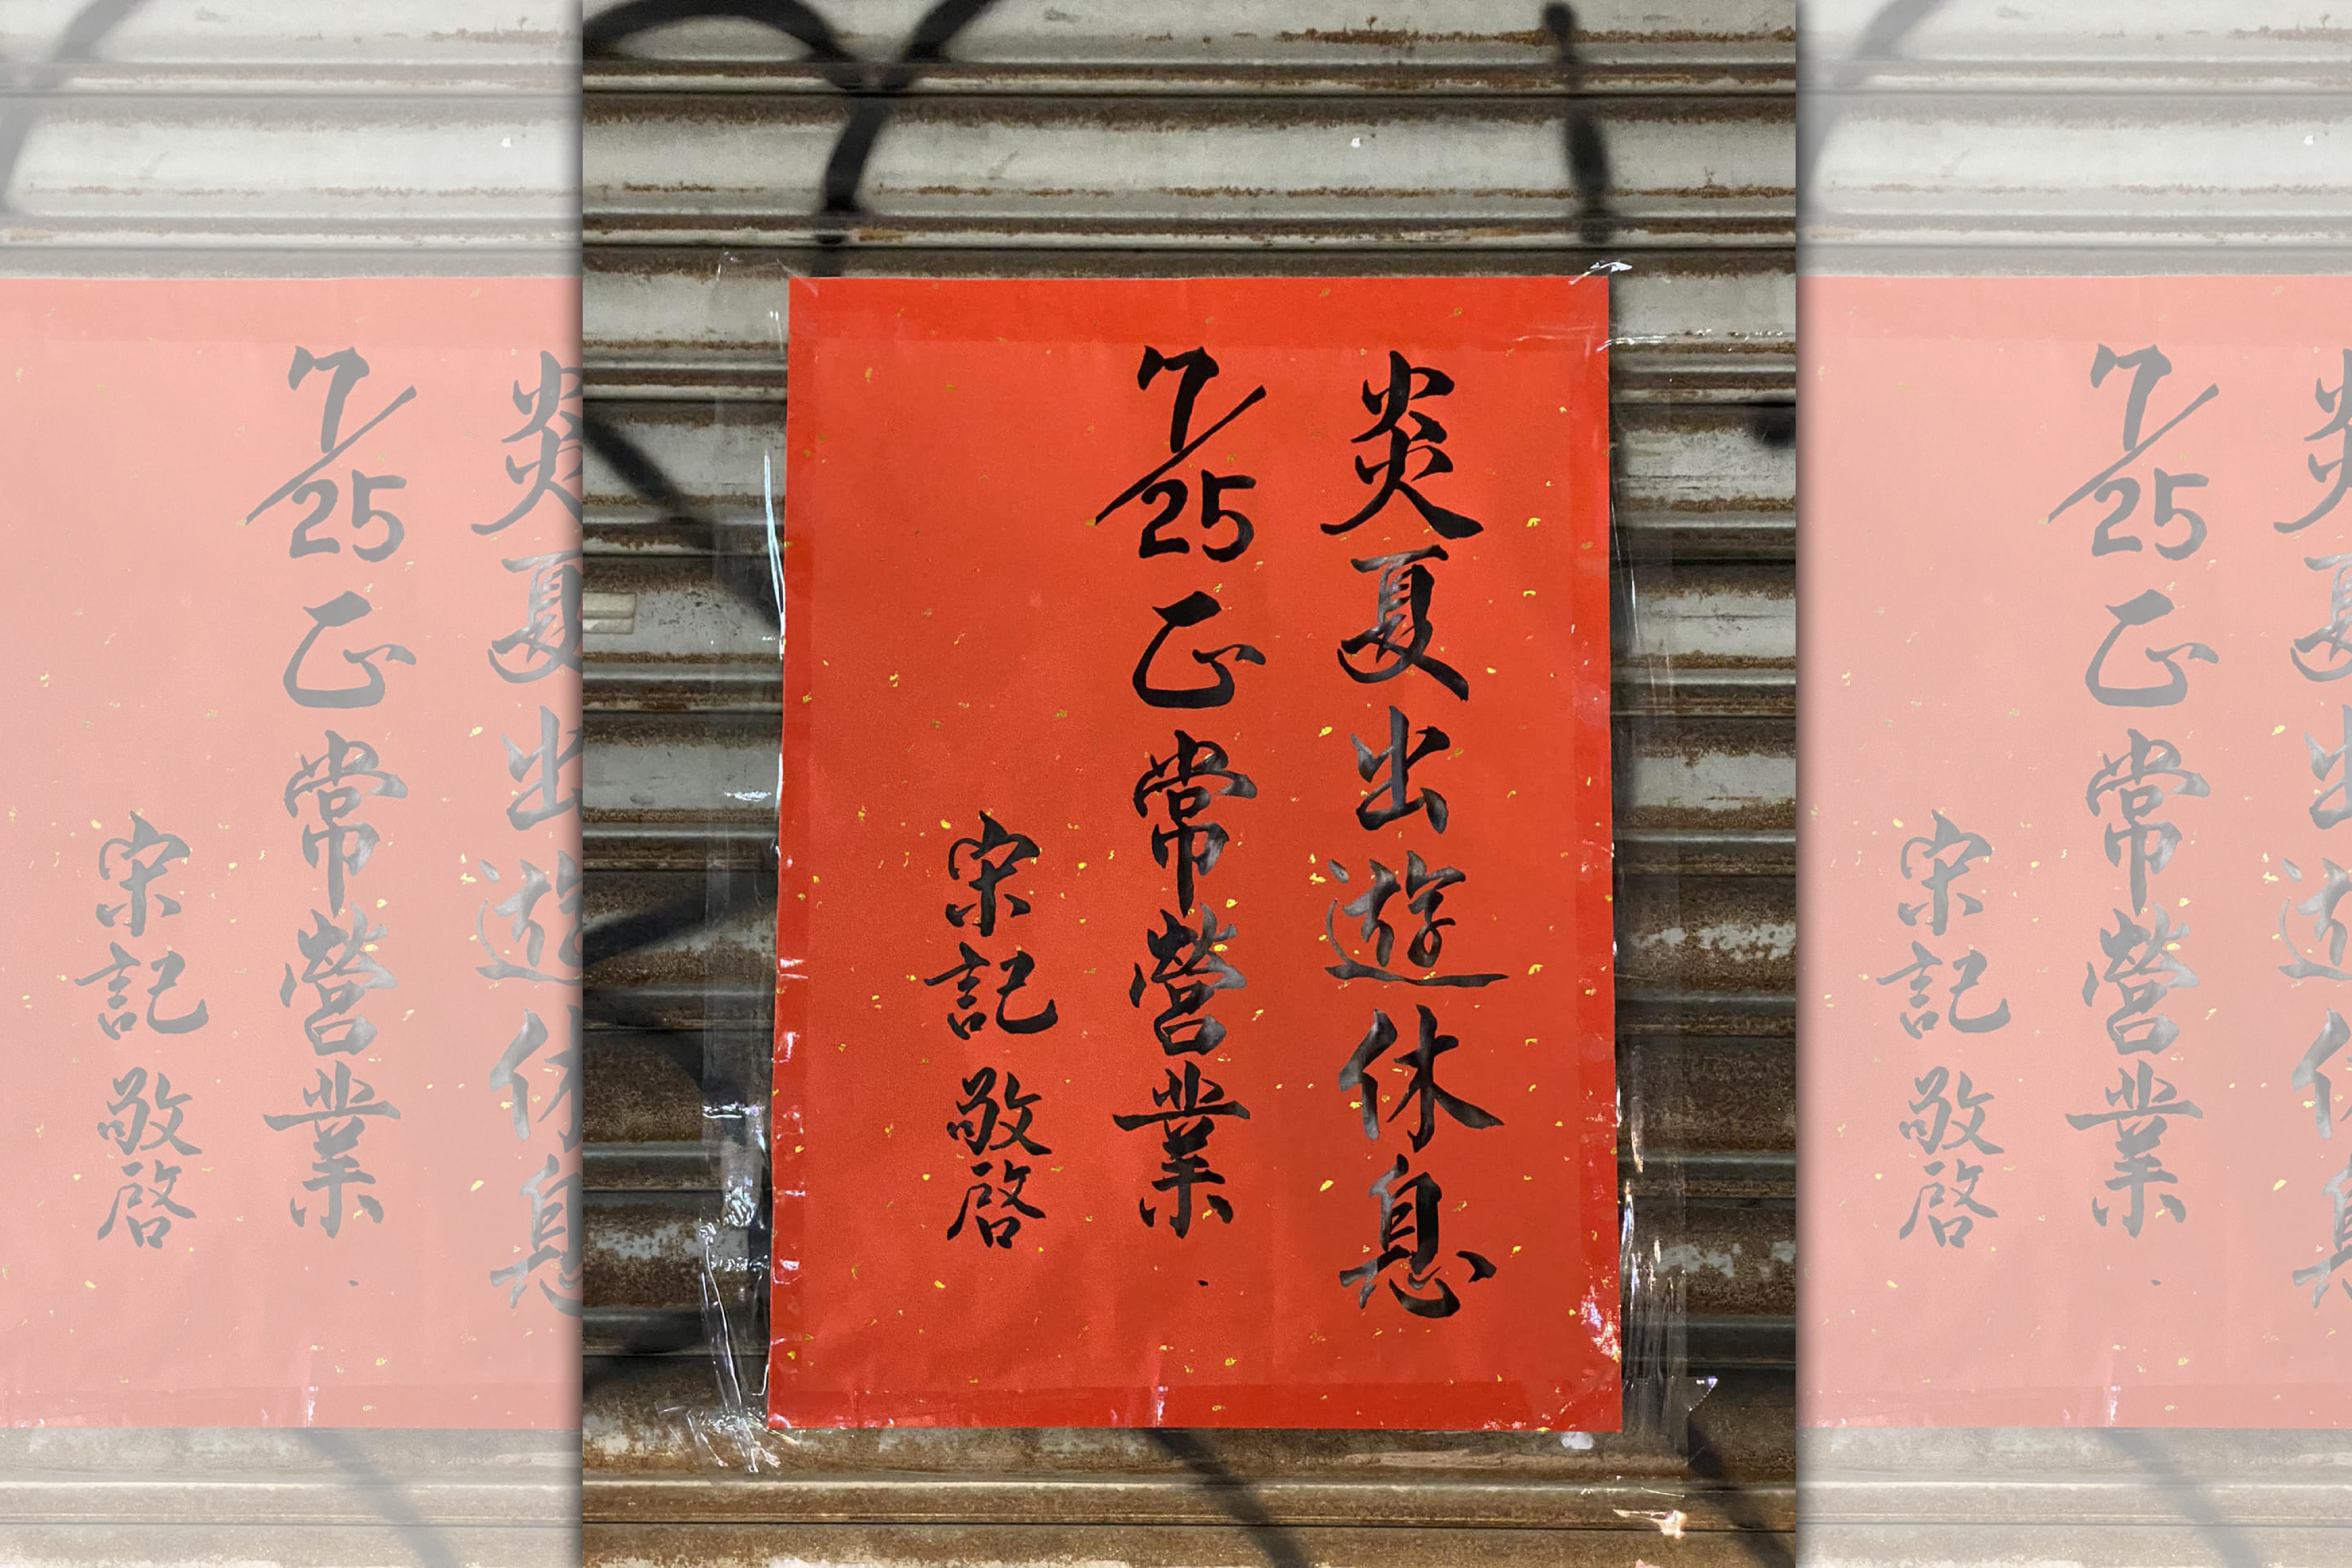 炎夏出遊休息
7/25正常營業
宋記 敬啓